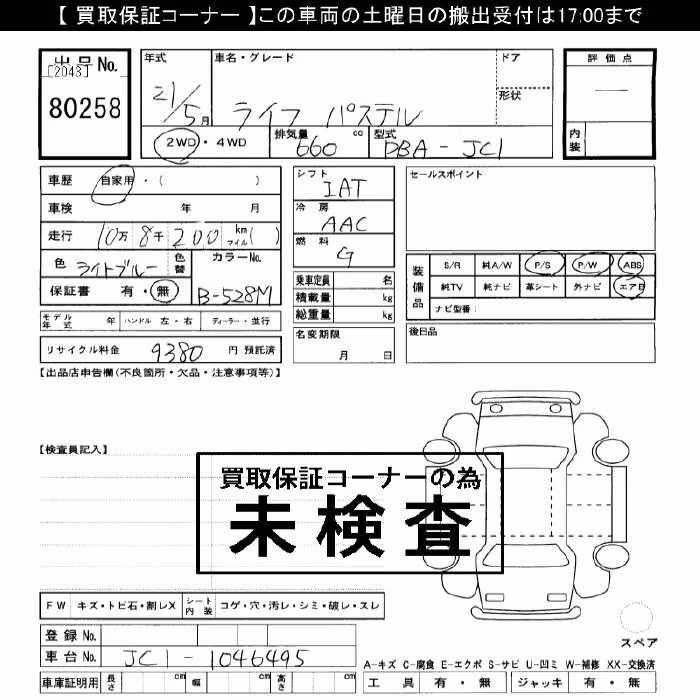 【 買取保証コーナー 】この車両の土曜日の搬出受付は17:00まで
出品No.
[2043]
80258
年式
21/5月
車名・グレード
ライフ パステル
ドア
形状
2WD・4WD
排気量 660 cc
型式 DBA-JC1
評価点
―
内装
車歴 自家用・( )
車検 年 月
走行 10万8千200 km マイル( )
色 ライトブルー 色替
カラーNo. B-528M
保証書 有・無
モデル年式 年 ハンドル 左・右 ディーラー・並行
リサイクル料金 9380 円 預託済
シフト
IAT
冷房
AAC
燃料
G
乗車定員 名
積載量 kg
総重量 kg
名変期限
月 日
セールスポイント
装備品
S/R 純A/W P/S P/W ABS
純TV 純ナビ 革シート 外ナビ エアB
ナビ型番:
後日品
【出品店申告欄(不良箇所・欠品・注意事項等)】
【検査員記入】
買取保証コーナーの為
未検査
FW キズ・トビ石・割レX シート内装 コゲ・穴・汚レ・シミ・破レ・スレ
登録No.
車台No. JC1-1046495
車庫証明用 長さ cm 幅 cm 高さ cm
スペア
A-キズ C-腐食 E-エクボ S-サビ U-凹ミ W-補修 XX-交換済
工具 有・無 ジャッキ 有・無